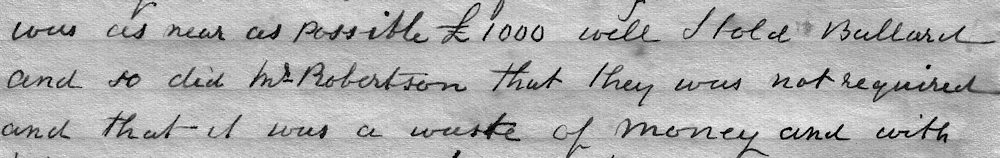 was as near as possible £1000 well I told Bullard
and so did Mr Robertson that they was not required
and that it was a waste of money and with